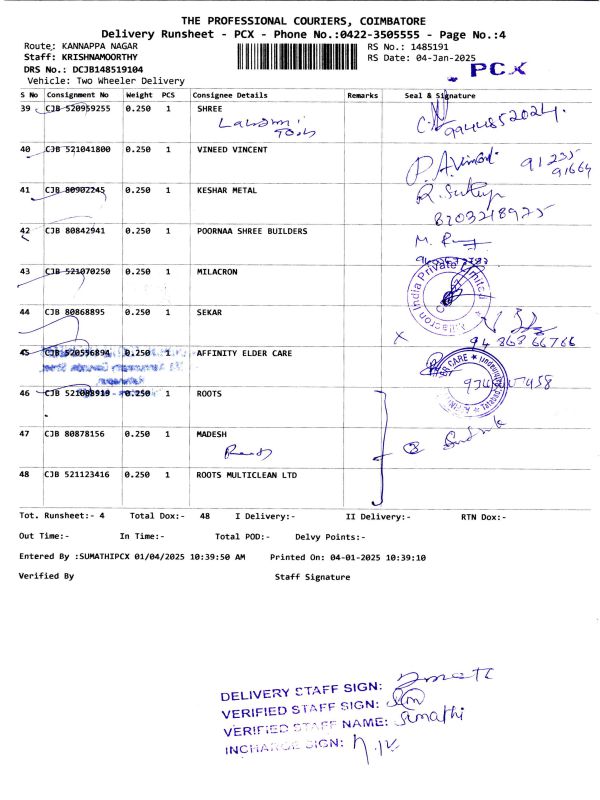 THE PROFESSIONAL COURIERS, COIMBATORE
Delivery Runsheet - PCX - Phone No.:0422-3505555 - Page No.:4
Route: KANNAPPA NAGAR
RS No.: 1485191
Staff: KRISHNAMOORTHY
RS Date: 04-Jan-2025
DRS No.: DCJB148519104
PCX
Vehicle: Two Wheeler Delivery
S No Consignment No Weight PCS Consignee Details Remarks Seal & Signature
39 CJB 520959255 0.250 1 SHREE
Lakshmi
9944852024
40 CJB 521041800 0.250 1 VINEED VINCENT
P.A. Vincent 91235
91664
41 CJB 80902245 0.250 1 KESHAR METAL
8203218925
42 CJB 80842941 0.250 1 POORNAA SHREE BUILDERS
M.
43 CJB 521070250 0.250 1 MILACRON
Milacron India Private Limited
44 CJB 80868895 0.250 1 SEKAR
X
94 868 66766
45 CJB 520556894 0.250 1 AFFINITY ELDER CARE
CARE
46 CJB 521088919 0.250 1 ROOTS
47 CJB 80878156 0.250 1 MADESH
48 CJB 521123416 0.250 1 ROOTS MULTICLEAN LTD
Tot. Runsheet:- 4 Total Dox:- 48 I Delivery:- II Delivery:- RTN Dox:-
Out Time:- In Time:- Total POD:- Delvy Points:-
Entered By :SUMATHIPCX 01/04/2025 10:39:50 AM Printed On: 04-01-2025 10:39:10
Verified By Staff Signature
DELIVERY STAFF SIGN:
VERIFIED STAFF SIGN:
VERIFIED STAFF NAME: Sumathi
INCHARGE SIGN: